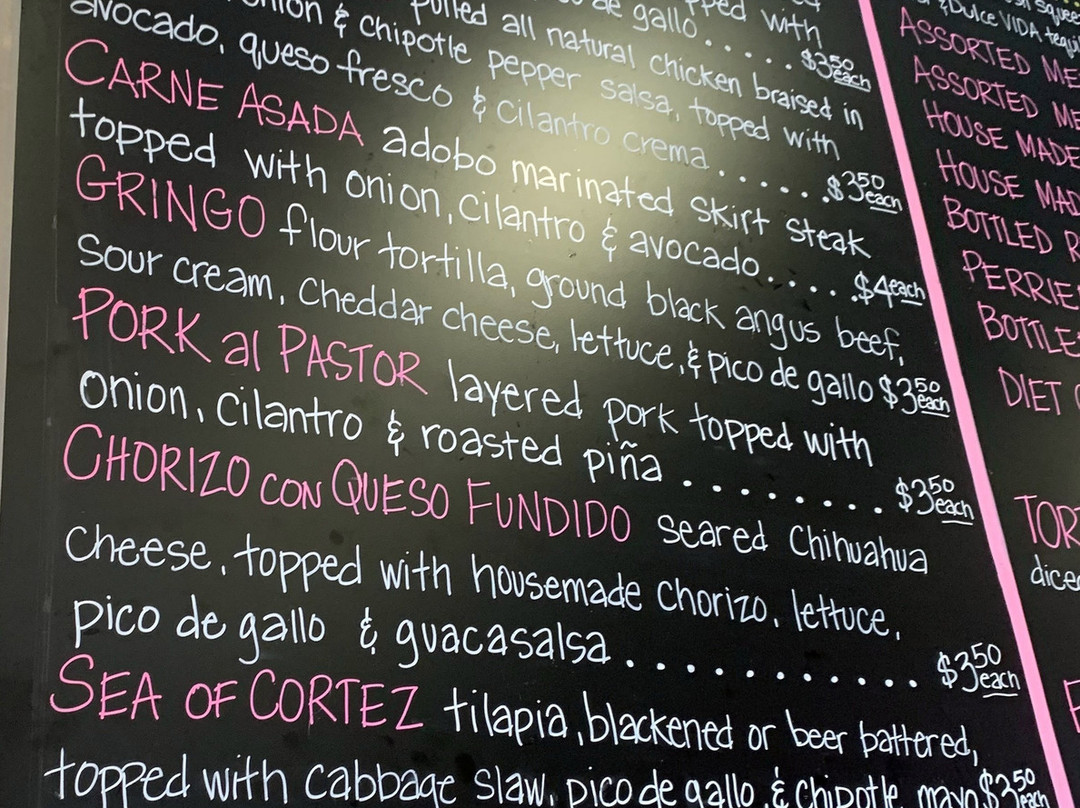 de gallo..... $3.50 each
pulled all natural chicken braised in
onion & chipotle pepper salsa, topped with
avocado, queso fresco & cilantro crema...... $3.50 each
CARNE ASADA adobo marinated skirt steak
topped with onion, cilantro & avocado...... $4 each
GRINGO flour tortilla, ground black angus beef,
sour cream, cheddar cheese, lettuce, & pico de gallo $3.50 each
PORK al PASTOR layered pork topped with
onion, cilantro & roasted piña ........ $3.50 each
CHORIZO CON QUESO FUNDIDO seared Chihuahua
cheese, topped with housemade chorizo, lettuce,
pico de gallo & guacasalsa............ $3.50 each
SEA OF CORTEZ tilapia, blackened or beer battered,
topped with cabbage slaw, pico de gallo, & chipotle mayo $3.50 each
& Dulce VIDA
ASSORTED
ASSORTED
HOUSE MADE
HOUSE
BOTTLED
DIET